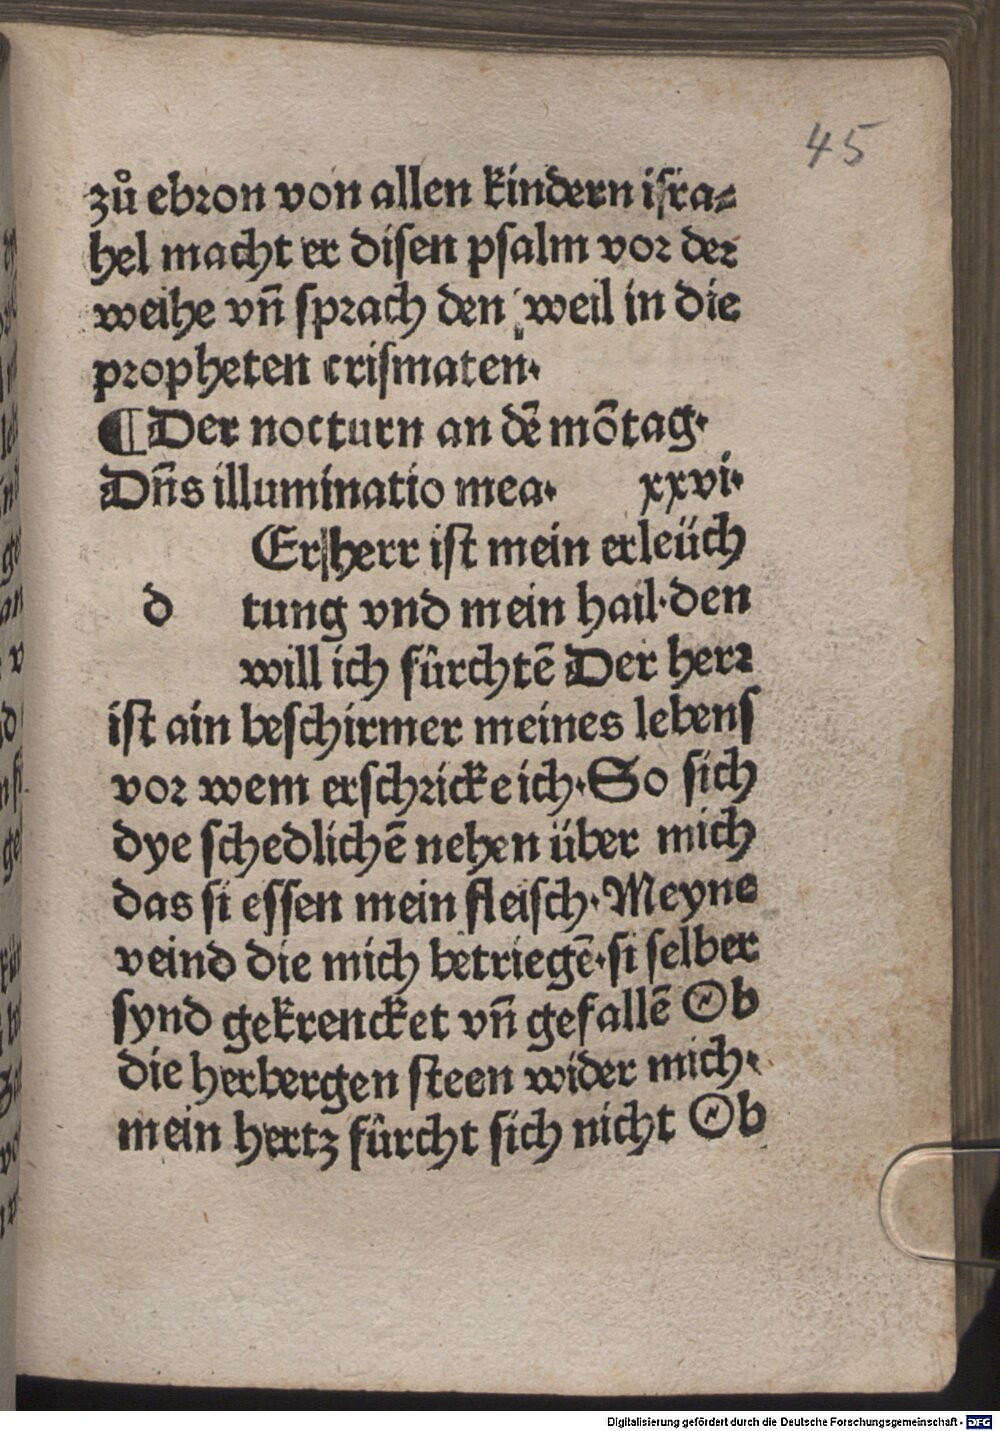 45
zů ebron von allen kindern isra⸗
hel macht er disen psalm vor der
weihe vñ sprach den weil in die
propheten crismaten·
¶Der nocturn an dē mōtag·
Dñs illuminatio mea· xxvi·
Er herr ist mein erleüch
d tung vnd mein hail·den
will ich fûrchtē Der herr
ist ain beschirmer meines lebens
vor wem erschricke ich·So sich
dye schedlichē nehen über mich
das si essen mein fleisch·Meyne
veind die mich betriegē·si selber
synd gekrencket vñ gefallē Ob
die herbergen steen wider mich·
mein hertz fûrcht sich nicht Ob
Digitalisierung gefördert durch die Deutsche Forschungsgemeinschaft - DFG